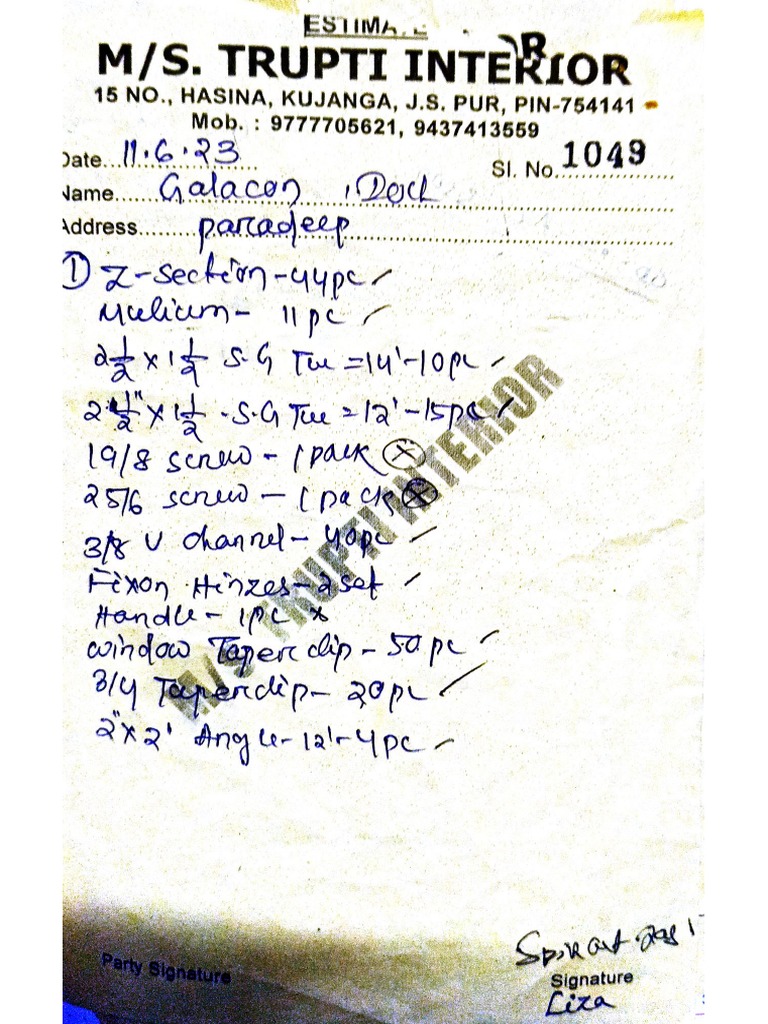 ESTIMATE
M/S. TRUPTI INTERIOR
15 NO., HASINA, KUJANGA, J.S. PUR, PIN-754141
Mob. : 9777705621, 9437413559
Date 11.6.23 Sl. No. 1049
Name Galacon
Address paradeep
① Z-section - 44pc
Mulium - 11 pc
2 1/2 x 1 1/2 S.G Tue = 14' - 10pc
2 1/2" x 1 1/2 . S.G Tue = 12' - 15pc
19/8 screw - 1 pack
25/6 screw - 1 pack
3/8 U channel - 40pc
Fixon Hinzes - 2 set
Handle - 1pc x
window Taper clip - 50 pc
3/4 Taper clip - 20pc
2" x 2' Angle - 12' - 4pc
M/S TRUPTI INTERIOR
Party Signature
Signature
Liza